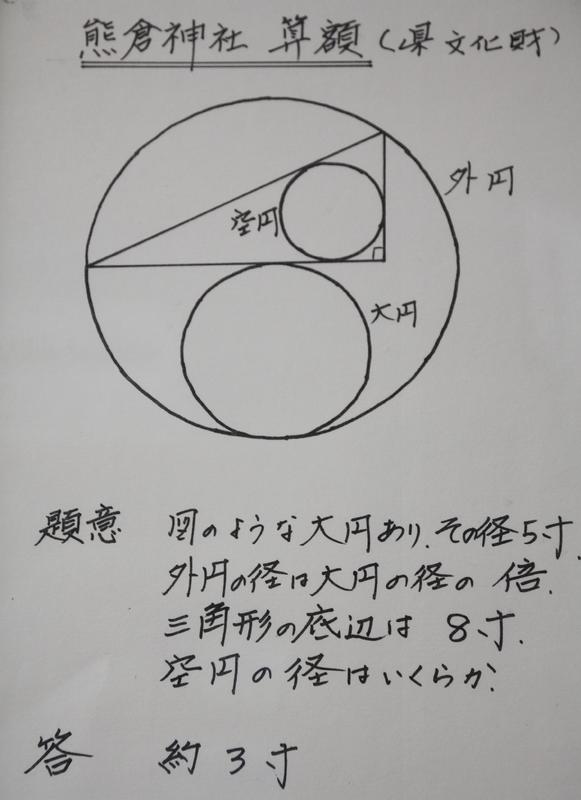 熊倉神社 算額(県文化財)
外円
空円
大円
題意 図のような大円あり、その径5寸、
外円の径は大円の径の 倍、
三角形の底辺は 8寸、
空円の径はいくらか、
答 約3寸